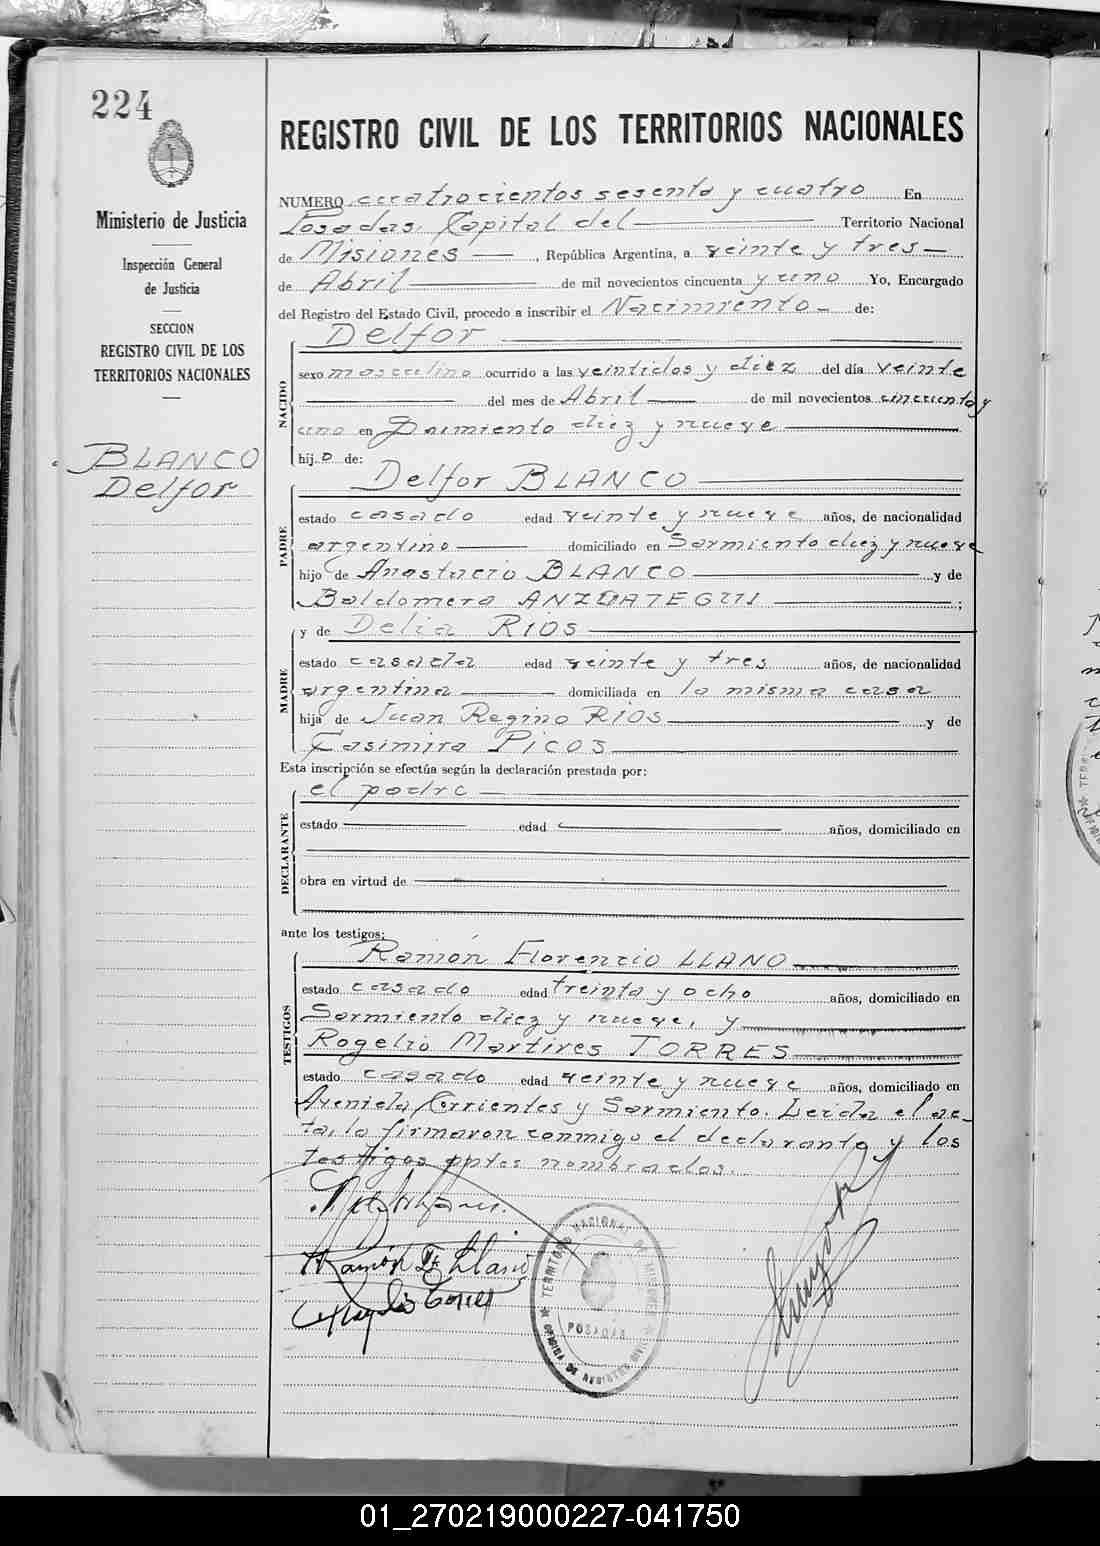 224
Ministerio de Justicia
Inspección General
de Justicia
SECCION
REGISTRO CIVIL DE LOS
TERRITORIOS NACIONALES
BLANCO
Delfor
REGISTRO CIVIL DE LOS TERRITORIOS NACIONALES
NUMERO cuatrocientos sesenta y cuatro En
Posadas, Capital del Territorio Nacional
de Misiones, República Argentina, a veinte y tres
de Abril de mil novecientos cincuenta y uno Yo, Encargado
del Registro del Estado Civil, procedo a inscribir el Nacimiento de:
NACIDO
Delfor
sexo masculino ocurrido a las veintidos y diez del día veinte
del mes de Abril de mil novecientos cincuenta y
uno en Sarmiento diez y nueve
hijo de:
PADRE
Delfor BLANCO
estado casado edad veinte y nueve años, de nacionalidad
argentino domiciliado en Sarmiento diez y nueve
hijo de Anastacio BLANCO y de
Baldomera ANZUATEGUI ;
MADRE
y de Delia RIOS
estado casada edad veinte y tres años, de nacionalidad
argentina domiciliada en la misma casa
hija de Juan Regino RIOS y de
Casimira PICOS
Esta inscripción se efectúa según la declaración prestada por:
DECLARANTE
el padre
estado edad años, domiciliado en
obra en virtud de
ante los testigos:
TESTIGOS
Ramón Florencio LLANO
estado casado edad treinta y ocho años, domiciliado en
Sarmiento diez y nueve, y
Rogelio Martires TORRES
estado casado edad veinte y nueve años, domiciliado en
Avenida Corrientes y Sarmiento. Leida el ac-
ta, la firmaron conmigo el declarante y los
testigos antes nombrados.
Ramón F. Llano
Rogelio Torres
TERRITORIO NACIONAL DE MISIONES
POSADAS
OFICINA DE REGISTRO CIVIL
01_270219000227-041750